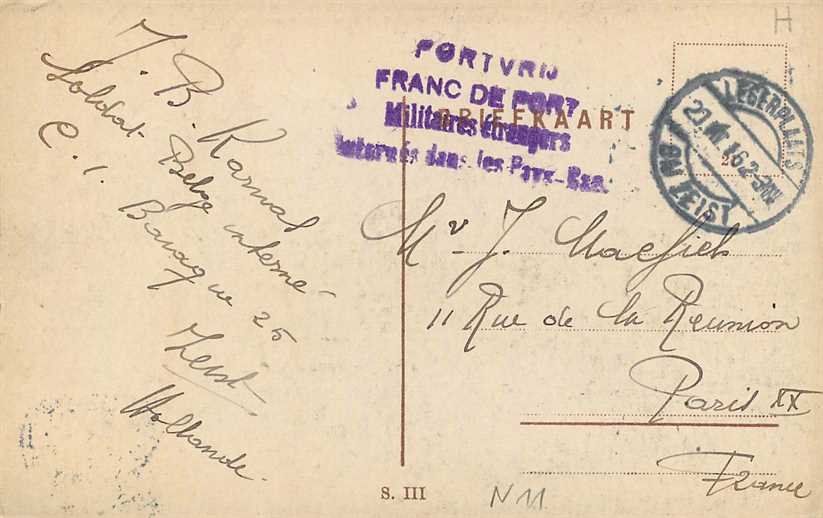 J. B. Ramal
Soldat Belge interné
C. 1. Baraque 25
Zeist
Hollande
PORTVRIJ
FRANC DE PORT
Militaires étrangers
internés dans les Pays-Bas.
BRIEFKAART
LEGERPLAATS
BIJ ZEIST
Mr J.
11 Rue de la Reunion
Paris XX
France
S. III
N 11
H